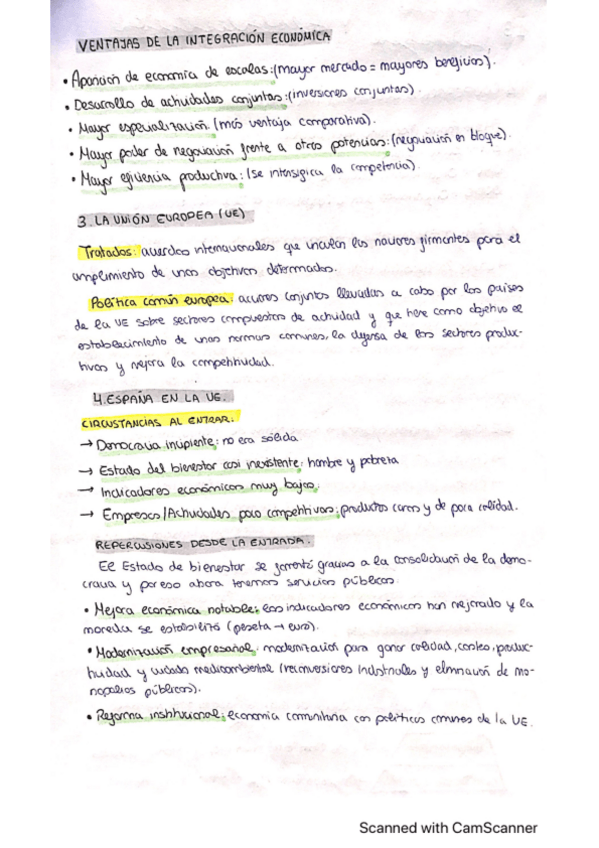 VENTAJAS DE LA INTEGRACIÓN ECONÓMICA
• Aparición de economía de escalas: (mayor mercado = mayores beneficios).
• Desarrollo de actividades conjuntas: (inversiones conjuntas).
• Mayor especialización (más ventaja comparativa).
• Mayor poder de negociación frente a otras potencias: (negociación en bloque).
• Mayor eficiencia productiva: (se intensifica la competencia).
3. LA UNIÓN EUROPEA (UE)
Tratados: acuerdos internacionales que vinculan las naciones firmantes para el
cumplimiento de unos objetivos determinados.
Política común europea: acciones conjuntas llevadas a cabo por los países
de la UE sobre sectores compuestos de actividad y que tiene como objetivo el
establecimiento de unas normas comunes, la defensa de los sectores produc-
tivos y mejora la competitividad.
4. ESPAÑA EN LA UE.
CIRCUSTANCIAS AL ENTRAR.
→ Democracia incipiente: no era sólida
→ Estado del bienestar casi inexistente: hambre y pobreza
→ Indicadores económicos muy bajos.
→ Empresas/Actividades poco competitivas: productos caros y de poca calidad.
REPERCUSIONES DESDE LA ENTRADA.
El Estado de bienestar se garantó gracias a la consolidación de la demo-
cracia y por eso ahora tenemos servicios públicos.
• Mejora económica notable: los indicadores económicos han mejorado y la
moneda se estabilizó (peseta → euro).
• Modernización empresarial: modernización para ganar calidad, costes, produc-
tividad y cuidado medioambiental (reconversiones industriales y eliminación de mo-
nopolios públicos).
• Reforma institucional: economía comunitaria con políticas comunes de la UE.
Scanned with CamScanner